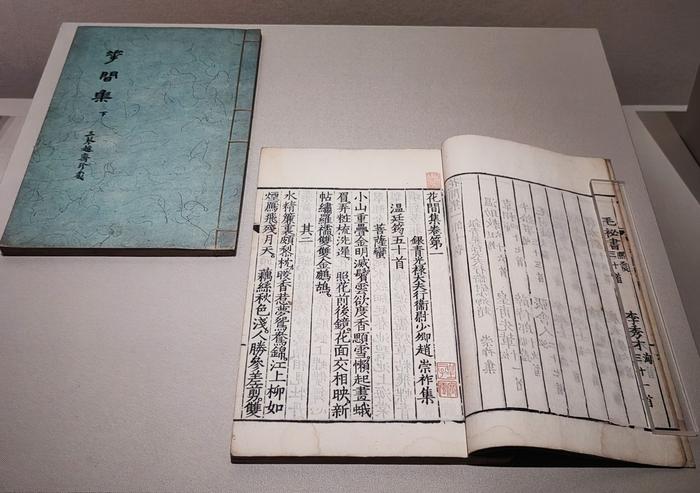 華間集 下
毛秘書
李秀才
花間集卷第一
銀青光祿大夫行衛尉少卿趙 崇祚集
溫廷筠五十首
菩薩蠻
小山重疊金明滅鬢雲欲度香顋雪懶起畫蛾
眉弄粧梳洗遲 照花前後鏡花面交相映新
帖繡羅襦雙雙金鷓鴣
其二
水精簾裏頗黎枕暖香惹夢鴛鴦錦江上柳如
煙鴈飛殘月天 藕絲秋色淺人勝參差剪雙